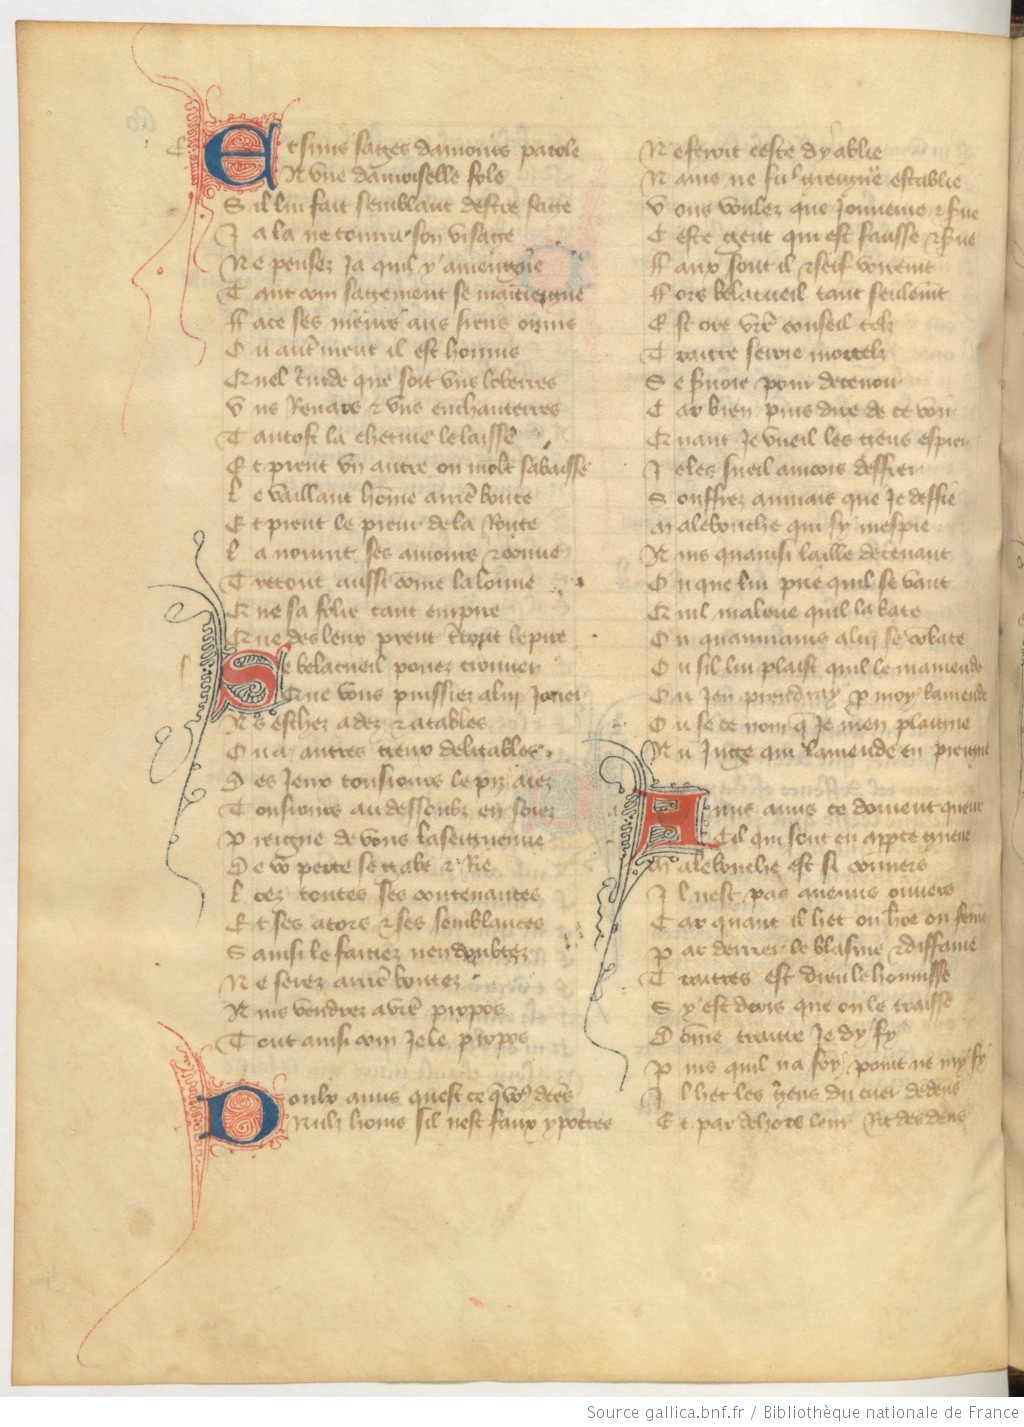 Et si nus sages damours parole
A vne damoiselle fole
S il lui fait semblant destre sage
J a la ne tourra son visage
N e pensez ja quil y auiengne
T ant com sagement se maintiengne
ff ace ses meurs aus siens onnis
O u autrement il est honnis
Q uel cuide que soit vns leberres
V ns Renars & vns enchanterres
T antost la chetiue le laisse
E t prent vn autre ou molt sabaisse
L e vaillant home arrere boute
E t prent le pieur de la Route
L a nourrit ses amours & couue
T restout aussi come la louue
Q ue sa folie tant empire
Q ue des leux prent tout le pire
Se belacueil pouez trouuer
Que vous puissiez a luy jouer
A s eschez a dez & a tables
O u a autres gieux delitables
D es jeux tousiours le piz aiez
T ousiours au dessoubz en soiez
P reigne de vous la seigneurie
D e vo perte se gabe & Rie
L oez toutes ses contenances
E t ses ators & ses semblances
S ainsi le faitiez nen doubtez
N e serez arrere boutez
M is vendrez a vre propos
T out ainsi com je le propos
Doulx amis quest ce que vous dites
Nulz homs sil nest faux ypocrites
N e feroit ceste dyablie
N ains ne fu greigneur establie
V ous voulez que jonneure & serue
C este gent qui est fausse & serue
ff aux sont il & serf vrement
ff ors belacueil tant seulement
E st ore vre conseil telz
T raitre seroie mortelz
S e seruoie pour deceuoir
C ar bien puis dire de ce voir
Q uant je vueil les gens espier
J e les sueil aincois deffier
S ouffrez aumains que je deffie
M alebouche qui sy mespie
A ins quainsi laille deceuant
O u que lui prie quil se vant
Q uil maleue quil labate
O u quaumains a luy se combate
O u sil lui plaist quil le mamende
O u jen prendray par moy lamende
O u se ce non que je men plaigne
A u juge qui lamende en preigne
Amis amis ce doiuent querre
Cil qui sont en apperte guerre
M alebouche est si couuers
J l nest pas anemis ouuers
C ar quant il het ou home ou feme
P ar derrier le blasme & diffame
T raitres est dieu le honnisse
S y est drois que on le traisse
D ome traitre je dy fy
P uis quil na foy point ne my fy
J l het les gens du cuer dedens
E t par dehors leur Rit des dens
Source gallica.bnf.fr / Bibliothèque nationale de France